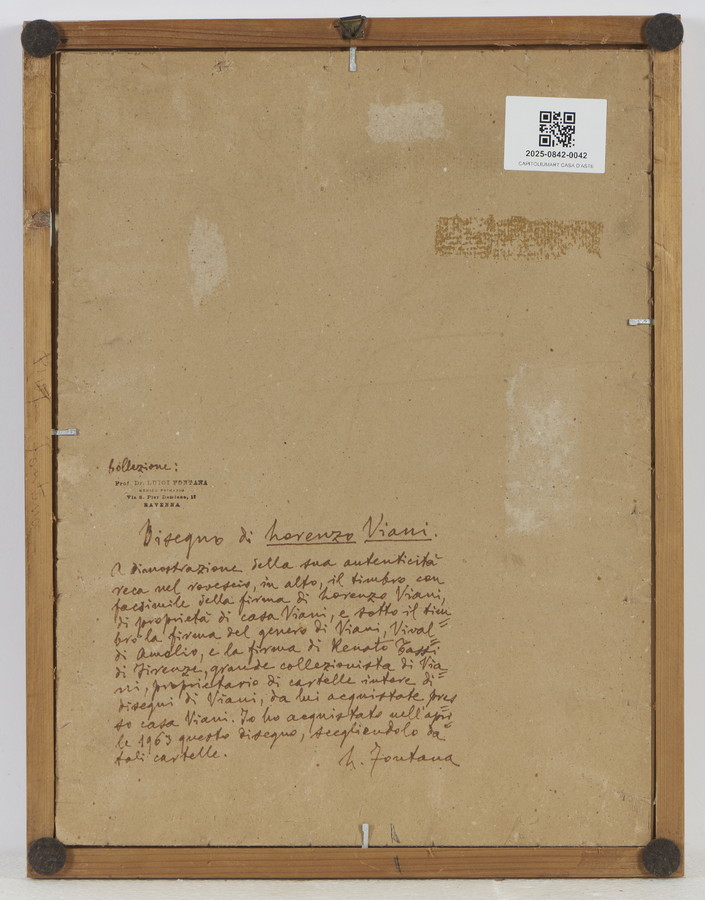 2025-0842-0042
CAPITOLIUMART CASA D'ASTE
Collezione:
Prof. Dr. LUIGI FONTANA
Via S. Pier Damiano, 11
RAVENNA
Disegno di Lorenzo Viani.
A dimostrazione della sua autenticità
reca nel rovescio, in alto, il timbro con
facsimile della firma di Lorenzo Viani,
di proprietà di casa Viani, e sotto il tim
bro la firma del genero di Viani, Vival=
di Amelio, e la firma di Renato Tassi
di Firenze, grande collezionista di Via
ni, proprietario di cartelle intere di=
disegni di Viani, da lui acquistate pres
so casa Viani. Io ho acquistato nell'apri=
le 1963 questo disegno, scegliendolo da
tali cartelle.
L. Fontana